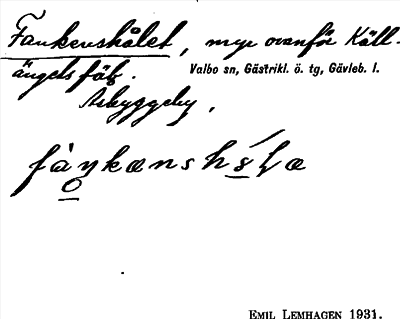 Fankenshålet, myr ovanför Käll-
ängets fäb.
Valbo sn, Gästrikl. ö. tg, Gävleb. l.
Åbyggeby.
EMIL LEMHAGEN 1931.